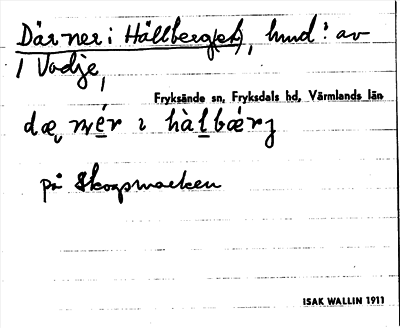 Där ner i Hällberg(et), hund: av
1 Vadje,
Fryksände sn, Fryksdals hd, Värmlands län
dæ nér ı hàlbǽrj
på Skogsmarken
ISAK WALLIN 1911